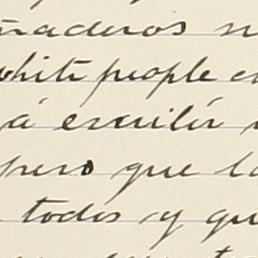 naderos n
white people e
á escribir
pero que l
todos y qu